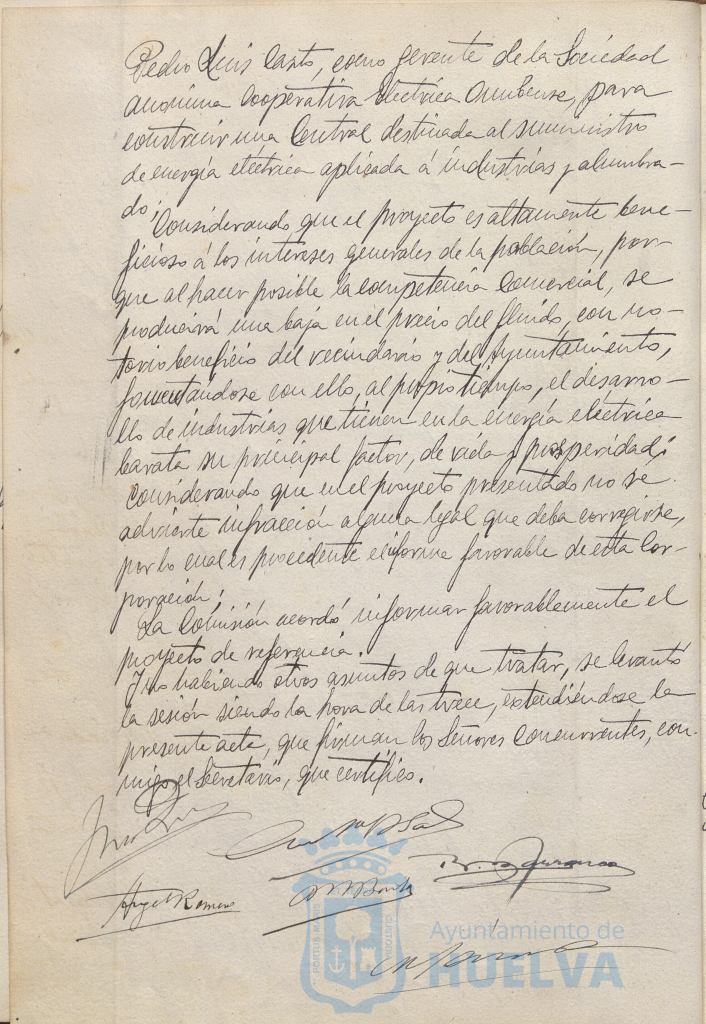 Pedro Luis Casto, como gerente de la Sociedad
anónima Cooperativa Eléctrica Onubense, para
construir una Central destinada al suministro
de energía eléctrica aplicada á industrias y alumbra-
do;
Considerando que el proyecto es altamente bene-
ficioso á los intereses generales de la población, por-
que al hacer posible la competencia Comercial, se
producirá una baja en el precio del fluido, con no-
torio beneficio del vecindario y del Ayuntamiento,
fomentándose con ello, al propio tiempo, el desarro-
llo de industrias que tienen en la energía eléctrica
barata su principal factor, de vida y prosperidad;
Considerando que en el proyecto presentado no se
advierte infracción alguna legal que deba corregirse,
por lo cual es procedente el informe favorable de esta Cor-
poración;
La Comisión acordó informar favorablemente el
proyecto de referencia.
Y no habiendo otros asuntos de que tratar, se levantó
la sesión siendo la hora de las trece, extendiéndose la
presente acta, que firman los Señores Concurrentes, con-
migo el Secretario, que certifico.
Angel Romero
Ayuntamiento de
HUELVA